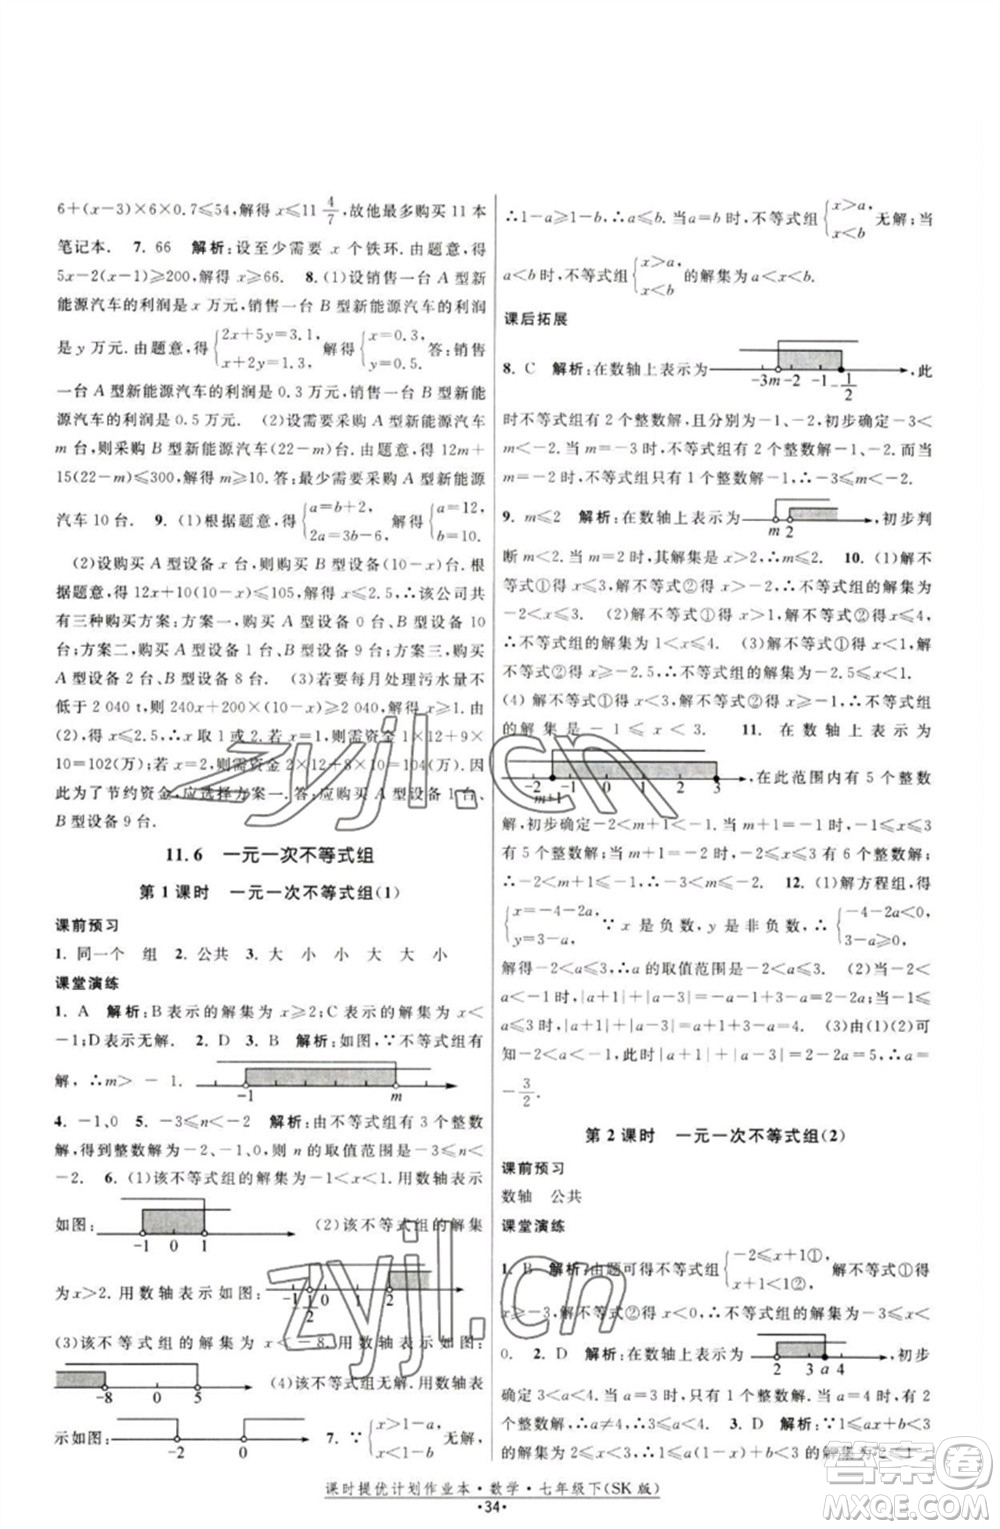 6+(x-3)×6×0.7⩽54,解得 x⩽11 4/7,故他最多购买 11 本
笔记本. 7. 66 解析:设至少需要 x 个铁环.由题意,得
5x-2(x-1)⩾200,解得 x⩾66. 8. (1)设销售一台 A 型新
能源汽车的利润是 x 万元,销售一台 B 型新能源汽车的利润
是 y 万元.由题意,得{2x+5y=3.1, x+2y=1.3, 解得{x=0.3, y=0.5. 答:销售
一台 A 型新能源汽车的利润是 0.3 万元,销售一台 B 型新能
源汽车的利润是 0.5 万元. (2)设需要采购 A 型新能源汽车
m 台,则采购 B 型新能源汽车(22-m)台.由题意,得 12m+
15(22-m)⩽300,解得 m⩾10. 答:最少需要采购 A 型新能源
汽车 10 台. 9. (1)根据题意,得{a=b+2, 2a=3b-6, 解得{a=12, b=10.
(2)设购买 A 型设备 x 台,则购买 B 型设备(10-x)台.根
据题意,得 12x+10(10-x)⩽105,解得 x⩽2.5,∴该公司共
有三种购买方案:方案一,购买 A 型设备 0 台、B 型设备 10
台;方案二,购买 A 型设备 1 台、B 型设备 9 台;方案三,购买
A 型设备 2 台、B 型设备 8 台. (3)若要每月处理污水量不
低于 2 040 t,则 240x+200(10-x)⩾2 040,解得 x⩾1. 由
(2),得 x⩽2.5,∴x 取 1 或 2. 若 x=1,则需资金 1×12+9×
10=102(万);若 x=2,则需资金 2×12+8×10=104(万).
因此为了节约资金,应选择方案一,即购买 A 型设备 1 台、
B 型设备 9 台.
11.6 一元一次不等式组
第 1 课时 一元一次不等式组(1)
课前预习
1. 同一个 组 2. 公共 3. 大 小 小 大 大 小
课堂演练
1. A 解析:B 表示的解集为 x⩾2;C 表示的解集为 x<
-1;D 表示无解. 2. D 3. B 解析:如图,∵不等式组有
解,∴m>-1. -1 m
4. -1,0 5. -3⩽n<-2 解析:由不等式组有 3 个整数
解,可知整数解为-2、-1、0,则 n 的取值范围是-3⩽n<
-2. 6. (1)该不等式组的解集为-1<x<1. 用数轴表示
如图: -1 0 1 (2)该不等式组的解集
为 x>2. 用数轴表示如图: -1 -1/2 0 1 2
(3)该不等式组的解集为 x<-8. 用数轴表示如图:
-8 0 5 (4)该不等式组无解. 用数轴表
示如图: -2 0 7. ∵{x>1-a, x<1-b 无解,
∴1-a⩾1-b,∴a⩽b. 当 a=b 时,不等式组{x>a, x<b 无解;当
a<b 时,不等式组{x>a, x<b 的解集为 a<x<b.
课后拓展
8. C 解析:在数轴上表示为 -3 m -2 -1 -1/2 ,此
时不等式组有 2 个整数解,且分别为-1、-2,初步确定-3<
m<-2. 当 m=-3 时,不等式组有 2 个整数解-1、-2;当
m=-2 时,不等式组有 1 个整数解-1,∴-3⩽m<-2.
9. m⩽2 解析:在数轴上表示为 m 2 ,初步判
断 m<2. 当 m=2 时,其解集为 x>2,∴m⩽2. 10. (1)解不
等式①得 x<3,解不等式②得 x⩾-2,∴不等式组的解集为
-2⩽x<3. (2)解不等式①得 x>1,解不等式②得 x<4,
∴不等式组的解集为 1<x<4. (3)解不等式①得 x⩽1,解
不等式②得 x>-5,∴不等式组的解集为-5<x⩽1.
(4) 解不等式①得 x⩾-1,解不等式②得 x<3,∴不等式组
的解集是-1⩽x<3. 11. 在数轴上表示为
-2 m+1 0 1 2 3 ,在此范围内有 5 个整数
解,初步确定-2<m+1<-1. 当 m+1=-1 时,-1<x<3
有 3 个整数解;当 m+1=-2 时,-2⩽x⩽3 有 6 个整数解,
∴-2<m+1⩽-1,∴-3<m⩽-2. 12. (1)解方程组,得
{x=-4-2a, y=3-2a. ∵x 是负数,y 是非负数,∴{-4-2a<0, 3-2a⩾0,
解得-2<a⩽3/2,∴a 的取值范围是-2<a⩽3/2. (2)∵-1
⩽a⩽3,∴|a+1|+|a-3|=a+1+3-a=4. (3)由(1)可
知-2<a⩽3/2,
-3/2.
第 2 课时 一元一次不等式组(2)
课前预习
数轴 公共
课堂演练
1. B 解析:由题可得不等式组{-2⩽x+1①, x+1<1②, 解不等式①得
x⩾-3,解不等式②得 x<0,∴不等式组的解集为-3⩽x<
0. 2. D 解析:在数轴上表示为 2 3 a 4 ,初步
确定 3<a<4. 当 a=3 时,只有 1 个整数解;当 a=4 时,有 2
个整数解,∴a≠4,∴3⩽a<4. 3. D
课时提优计划作业本·数学·七年级下(SK 版)
·34·
zyjl.cn
zyjl.cn
答案圈